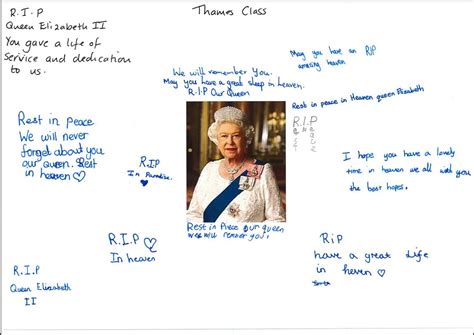 R.I.P
Queen Elizabeth II
You gave a life of
service and dedication
to us.
Thames Class
We will remember You.
May you have a great sleep in heaven.
R.I.P Our Queen
May you have an RIP
amazing heaven
Rest in peace in Heaven queen Elizabeth
R.I.P
Rest in peace
We will never
forget about you
our queen. Rest
in heaven
R.I.P
In Paradise.
I hope you have a lovely
time in heaven we all with you
the best hopes.
Rest in Peace our queen
we will remember you!
R.I.P
In heaven
RiP
have a great life
in heven
R.I.P
Queen Elizabeth
II